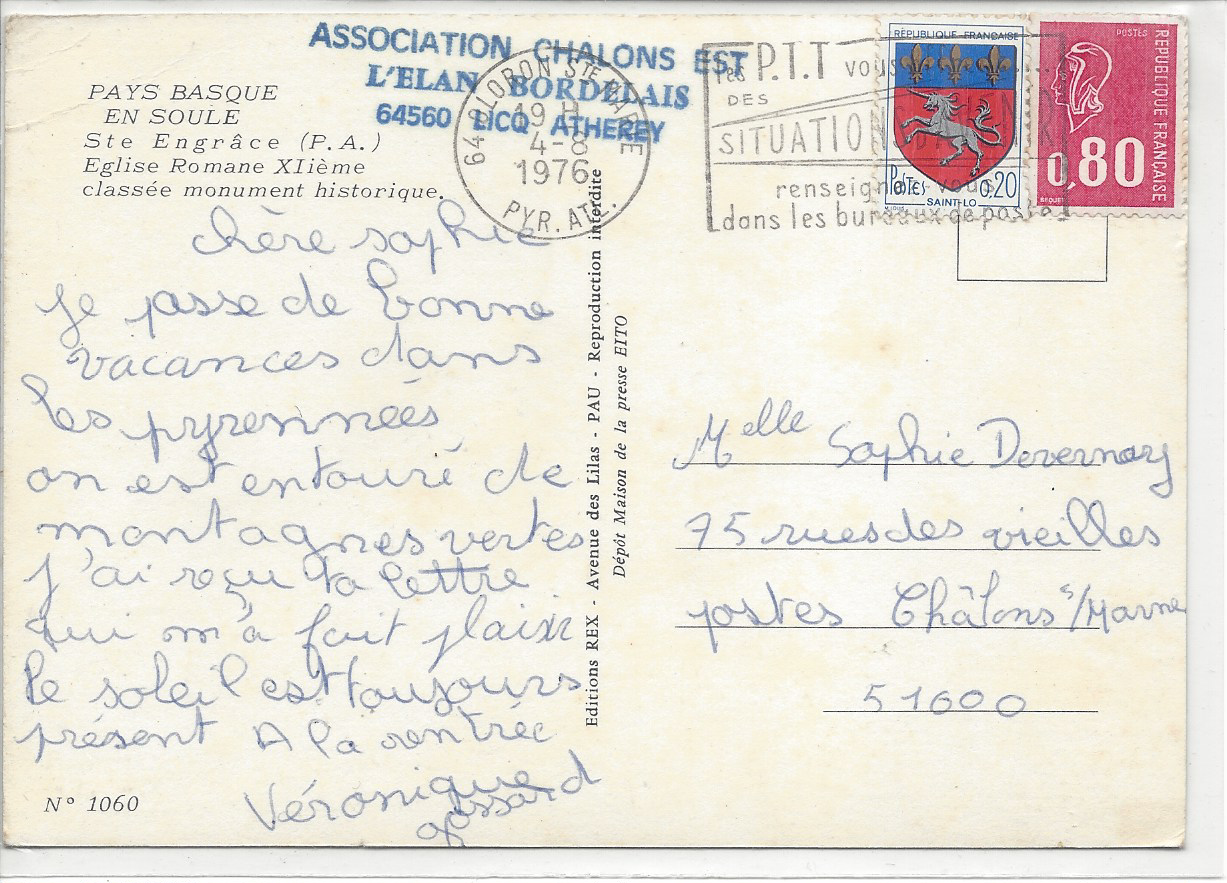 ASSOCIATION CHALONS EST
L'ELAN BORDELAIS
64560 LICQ ATHEREY
PAYS BASQUE
EN SOULE
Ste Engrâce (P.A.)
Eglise Romane XIième
classée monument historique.
64 OLORON STE MARIE
19 H
4-8
1976
PYR. ATL.
les P.T.T vous
DES
SITUATION
renseignez vous
dans les bureaux de poste
RÉPUBLIQUE FRANÇAISE
POSTES 0,20
SAINT-LO
POSTES
REPUBLIQUE FRANÇAISE
0,80
BEQUET
chère sophie
je passe de bonne
vacances dans
les pyrennées
on est entouré de
montagnes vertes
j'ai reçu ta lettre
qui m'a fait plaisir
le soleil est toujours
présent A la rentrée
Véronique
gossard
N° 1060
Editions REX - Avenue des Lilas - PAU - Reproduction interdite
Dépôt Maison de la presse EITO
Melle Sophie Devernay
75 rues des vieilles
postes Châlons s/Marne
51000